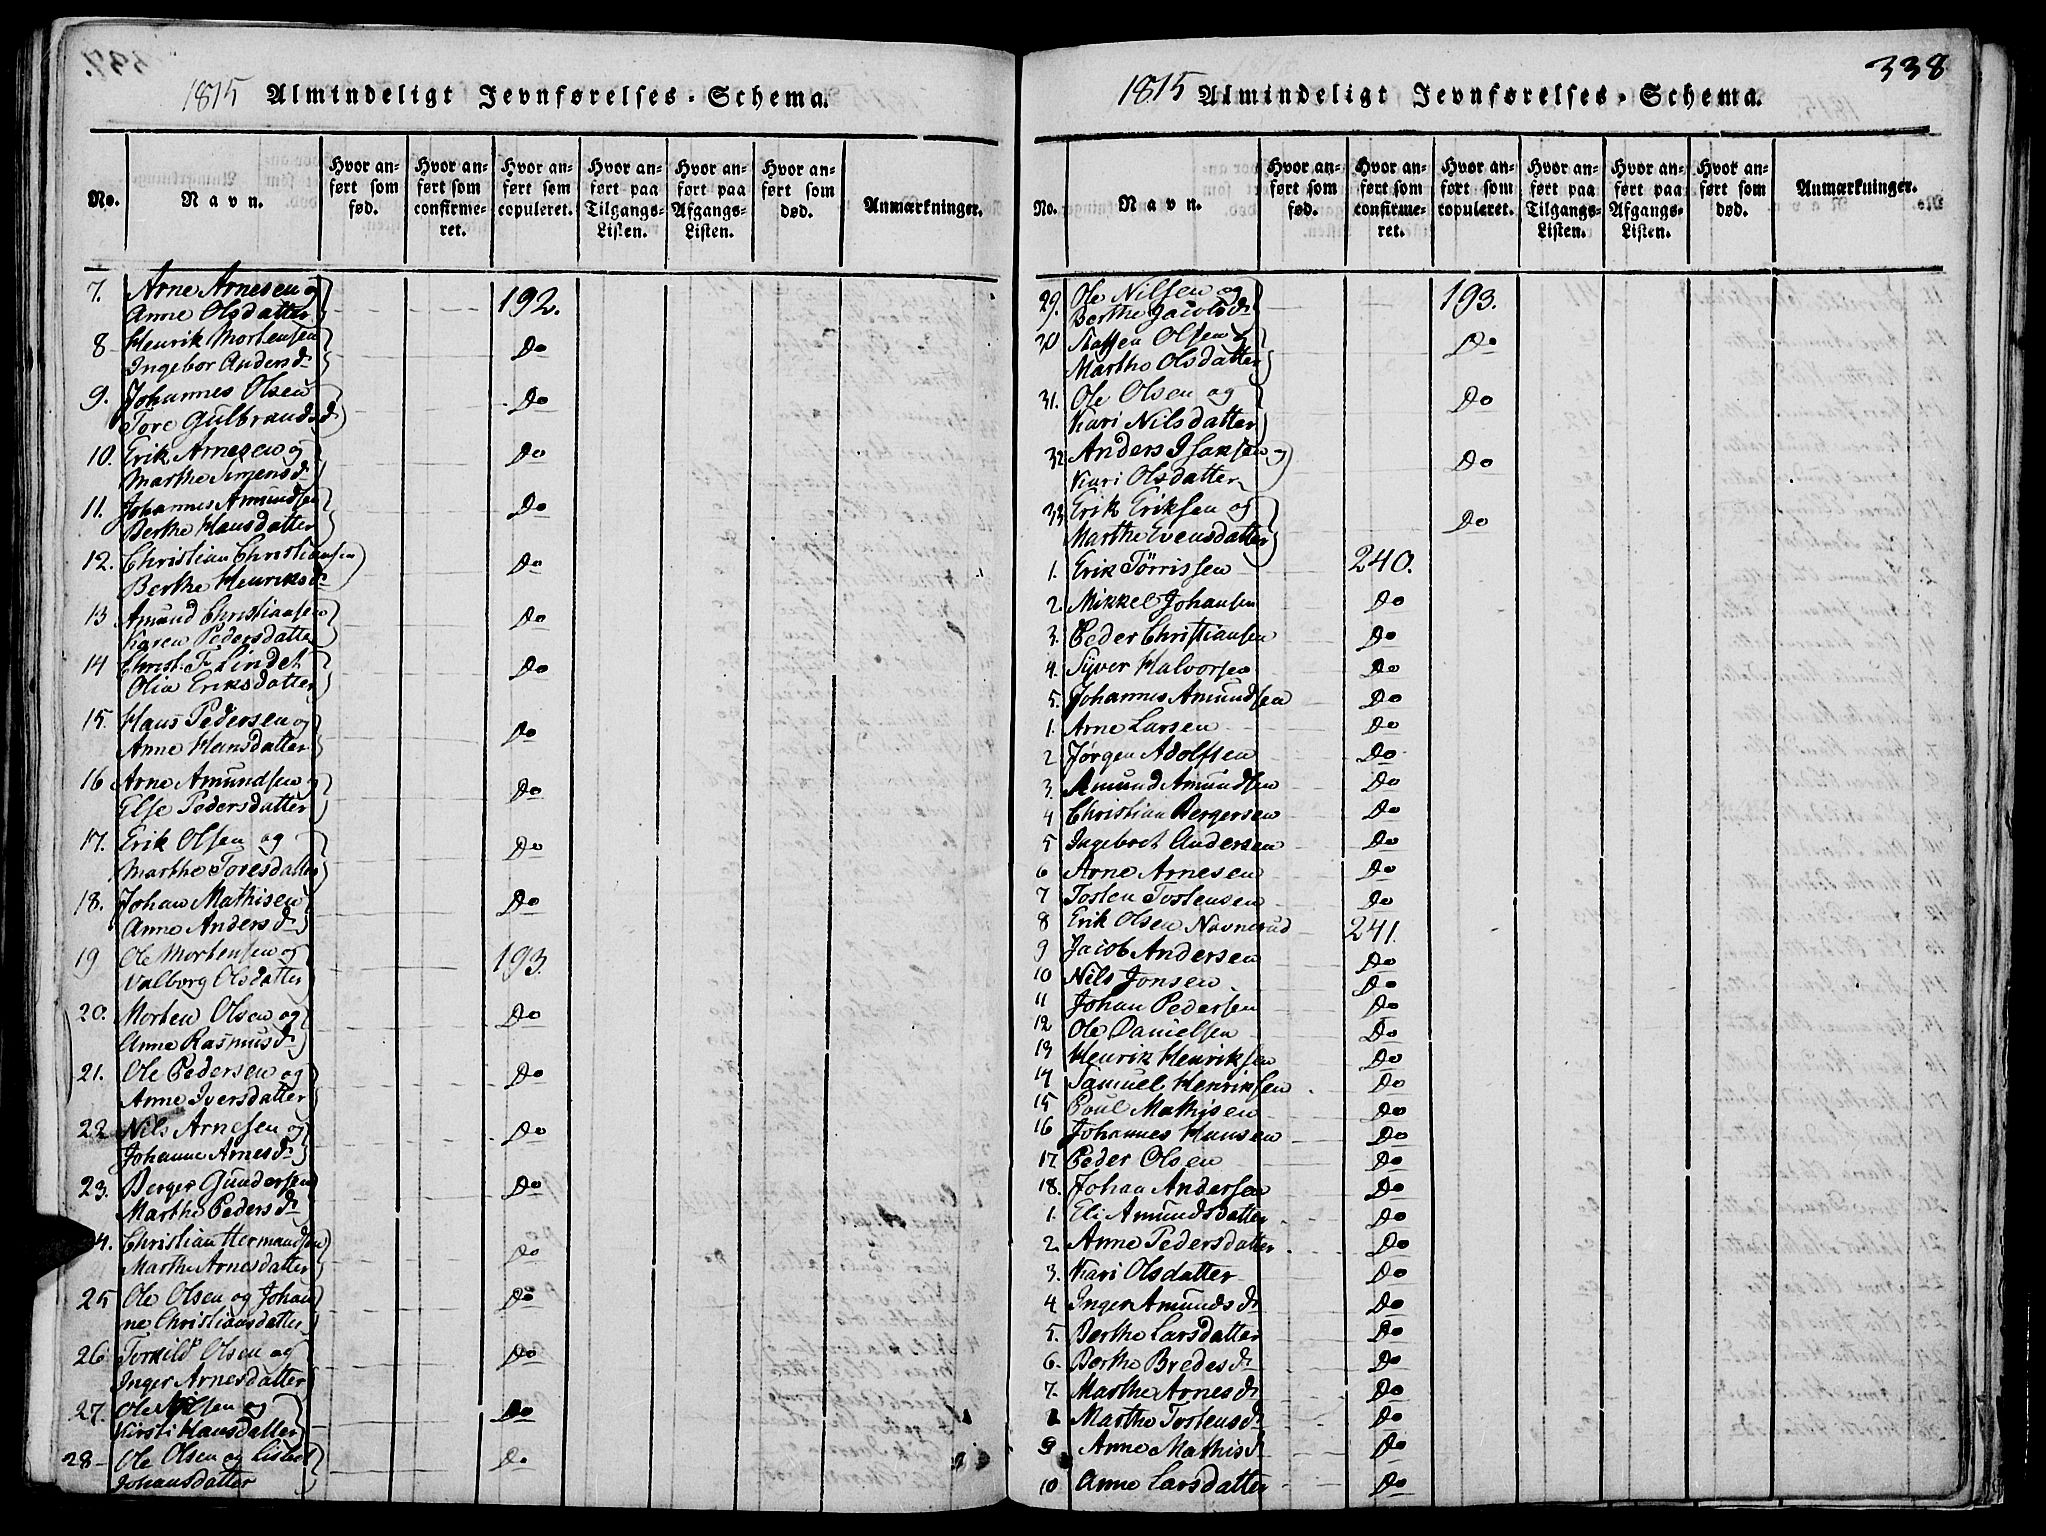 1815 Almindeligt Jevnførelses-Schema.
No.
Navn.
Hvor anført som fød.
Hvor anført som confirmeret.
Hvor anført som copuleret.
Hvor anført paa Tilgangs-Listen.
Hvor anført paa Afgangs-Listen.
Hvor anført som død.
Anmærkninger.
7. Arne Arnesen og
Anne Olsdatter 192.
8 Henrik Mortensen
Ingebor Anders d. Do
9. Johannes Olsen
Tore Gulbrandsd Do
10. Erik Arnesen og
Marthe Simens d. Do
11. Johannes Amundsen
Berthe Hansdatter Do
12. Christian Christiansen
Berthe Henriks d. Do
13 Amund Christiansen
Karen Pedersdatter Do
14 Christ. F. Lindet
Olia Eriksdatter Do
15. Hans Pedersen og
Anne Hansdatter Do
16 Arne Amundsen og
Else Pedersdatter Do
17. Erik Olsen og
Marthe Toresdatter Do
18. Johan Mathisen
Anne Anders d. Do
19 Ole Mortensen og
Valborg Olsdatter 193.
20. Morten Olsen og
Anne Rasmus d. Do
21. Ole Pedersen og
Anne Iversdatter Do
22 Nils Arnesen og
Johanne Arnes d. Do
23. Berger Gundersen
Marthe Peders d. Do
24. Christian Hermandsen
Marthe Arnesdatter Do
25 Ole Olsen og Johan
ne Christiansdatter Do
26 Torkild Olsen og
Inger Arnesdatter Do
27. Ole Nilsen og
Kirsti Hansdatter Do
28 Ole Olsen og Lisbet
Johansdatter Do
338
1815 Almindeligt Jevnførelses-Schema.
No.
Navn.
Hvor anført som fød.
Hvor anført som confirmeret.
Hvor anført som copuleret.
Hvor anført paa Tilgangs-Listen.
Hvor anført paa Afgangs-Listen.
Hvor anført som død.
Anmærkninger.
29. Ole Nilsen og
Berthe Jacobs d. 193.
30 Staffen Olsen og
Marthe Olsdatter Do
31. Ole Olsen og
Kari Nilsdatter Do
32 Anders Isaksen og
Kari Olsdatter Do
33 Erik Eriksen og
Marthe Evensdatter Do
1. Erik Tørrissen 240.
2. Mikkel Johansen Do
3. Peder Christiansen Do
4. Syver Halvorsen Do
5. Johannes Amundsen Do
1. Arne Larsen Do
2 Jørgen Adolfsen Do
3. Amund Amundsen Do
4 Christian Bergersen Do
5 Ingebret Andersen Do
6 Arne Arnesen Do
7 Tosten Tostensen Do
8 Erik Olsen Navnerud 241.
9 Jacob Andersen Do
10 Nils Jonsen Do
11 Johan Pedersen Do
12 Ole Danielsen Do
13 Henrik Henriksen Do
14 Samuel Henriksen Do
15 Poul Mathisen Do
16 Johannes Hansen Do
17 Peder Olsen Do
18. Johan Andersen Do
1. Eli Amundsdatter Do
2. Anne Pedersdatter Do
3. Kari Olsdatter Do
4 Inger Amunds d. Do
5. Berthe Larsdatter Do
6. Berthe Bredes d. Do
7. Marthe Arnes d. Do
8 Marthe Tostens d. Do
9 Anne Mathis d. Do
10 Anne Larsdatter Do